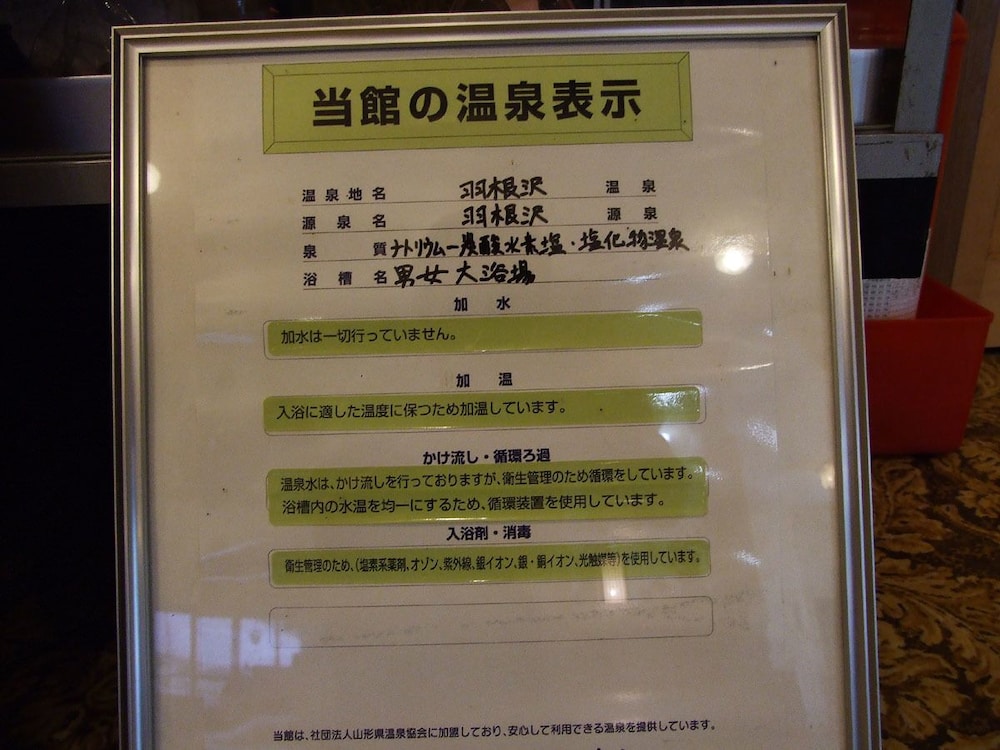 当館の温泉表示
温泉地名 羽根沢 温泉
源泉名 羽根沢 源泉
泉質 ナトリウム－炭酸水素塩・塩化物温泉
浴槽名 男女大浴場
加水
加水は一切行っていません。
加温
入浴に適した温度に保つため加温しています。
かけ流し・循環ろ過
温泉水は、かけ流しを行っておりますが、衛生管理のため循環をしています。
浴槽内の水温を均一にするため、循環装置を使用しています。
入浴剤・消毒
衛生管理のため、(塩素系薬剤、オゾン、紫外線、銀イオン、銀・銅イオン、光触媒等)を使用しています。
当館は、社団法人山形県温泉協会に加盟しており、安心して利用できる温泉を提供しています。